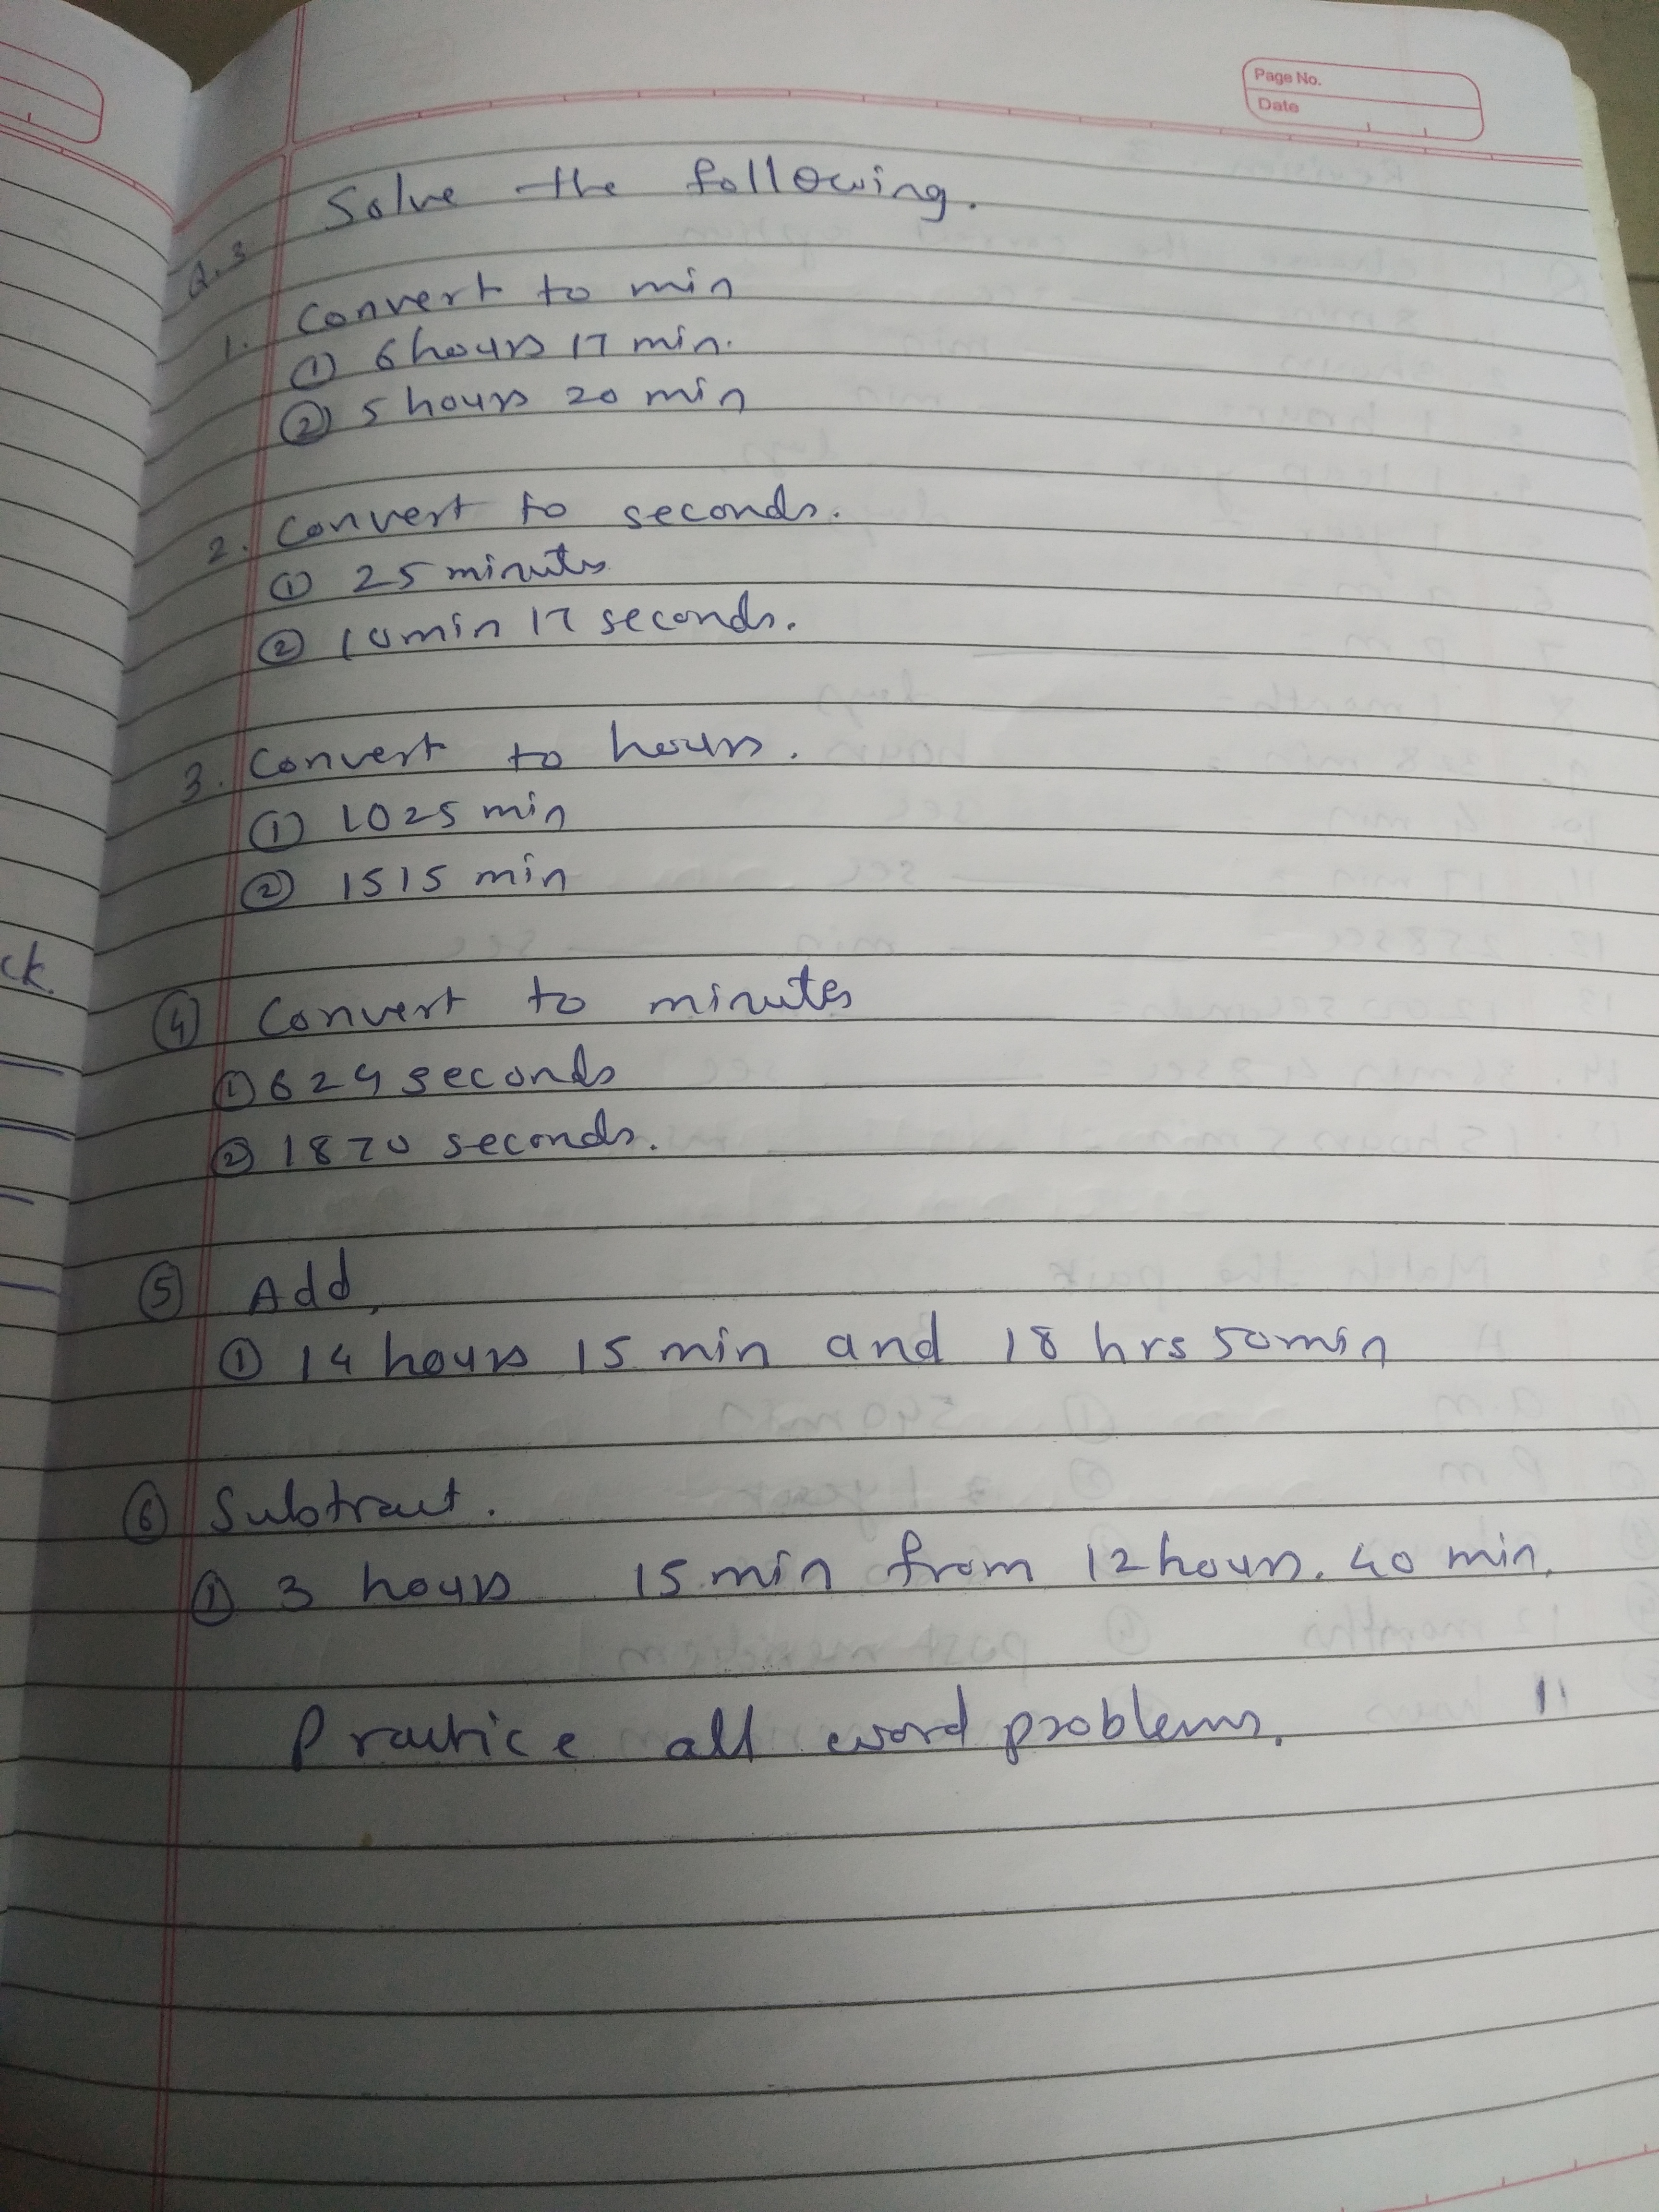 Page No.
Date
Q.3 Solve the following.
1. Convert to min
① 6 hours 17 min.
② 5 hours 20 min
2. Convert to seconds.
① 25 minutes
② 10 min 17 seconds.
3. Convert to hours.
① 1025 min
② 1515 min
ck.
④ Convert to minutes
① 624 seconds
② 1870 seconds.
⑤ Add,
① 14 hours 15 min and 18 hrs 50 min
⑥ Subtract.
① 3 hours 15 min from 12 hours. 40 min.
Practice all word problems.